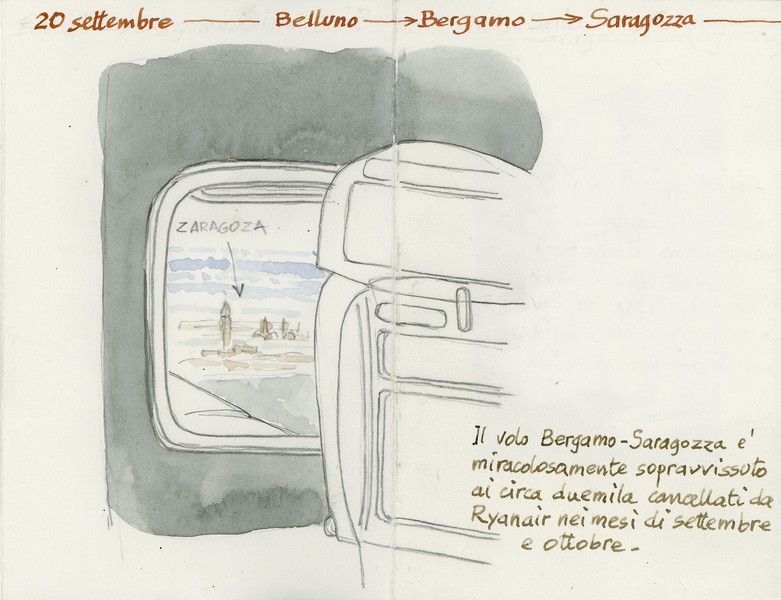 20 settembre — Belluno → Bergamo → Saragozza —
ZARAGOZA
Il volo Bergamo-Saragozza e'
miracolosamente sopravvissuto
ai circa duemila cancellati da
Ryanair nei mesi di settembre
e ottobre.